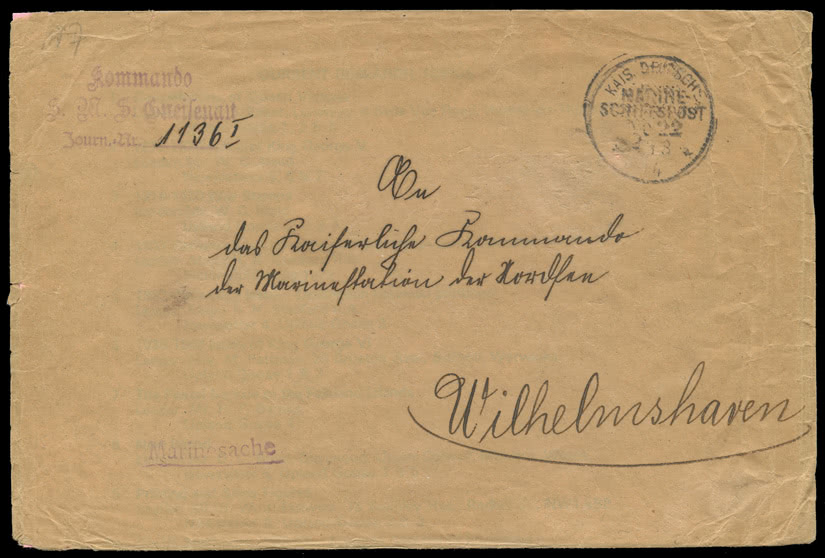 Kommando
S. M. S. Gneisenau
Journ.-Nr. 1136 I
KAIS. DEUTSCHE
MARINE-
SCHIFFSPOST
No 22
An
das Kaiserliche Kommando
der Marinestation der Nordsee
Wilhelmshaven
Marinesache